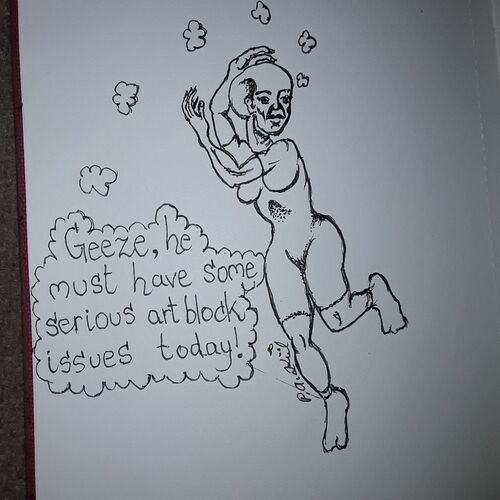 Geeze, he
must have some
serious art block
issues today!